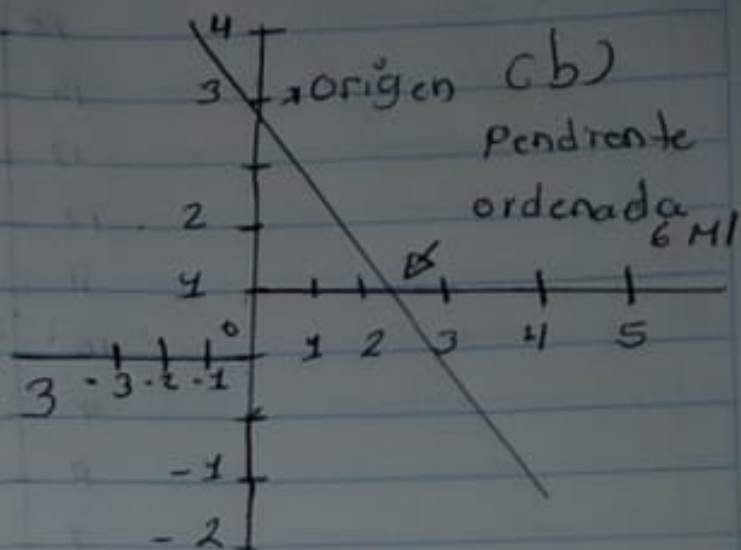 4
3 origen (b)
Pendiente
2 ordenada
6 M
1
0 1 2 3 4 5
3 -3 -2 -1
-1
-2